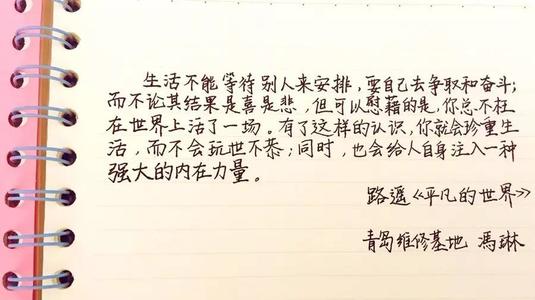 生活不能等待别人来安排，要自己去争取和奋斗；
而不论其结果是喜是悲，但可以慰藉的是，你总不枉
在世界上活了一场。有了这样的认识，你就会珍重生
活，而不会玩世不恭；同时，也会给人自身注入一种
强大的内在力量。
路遥《平凡的世界》
青岛维修基地 冯琳